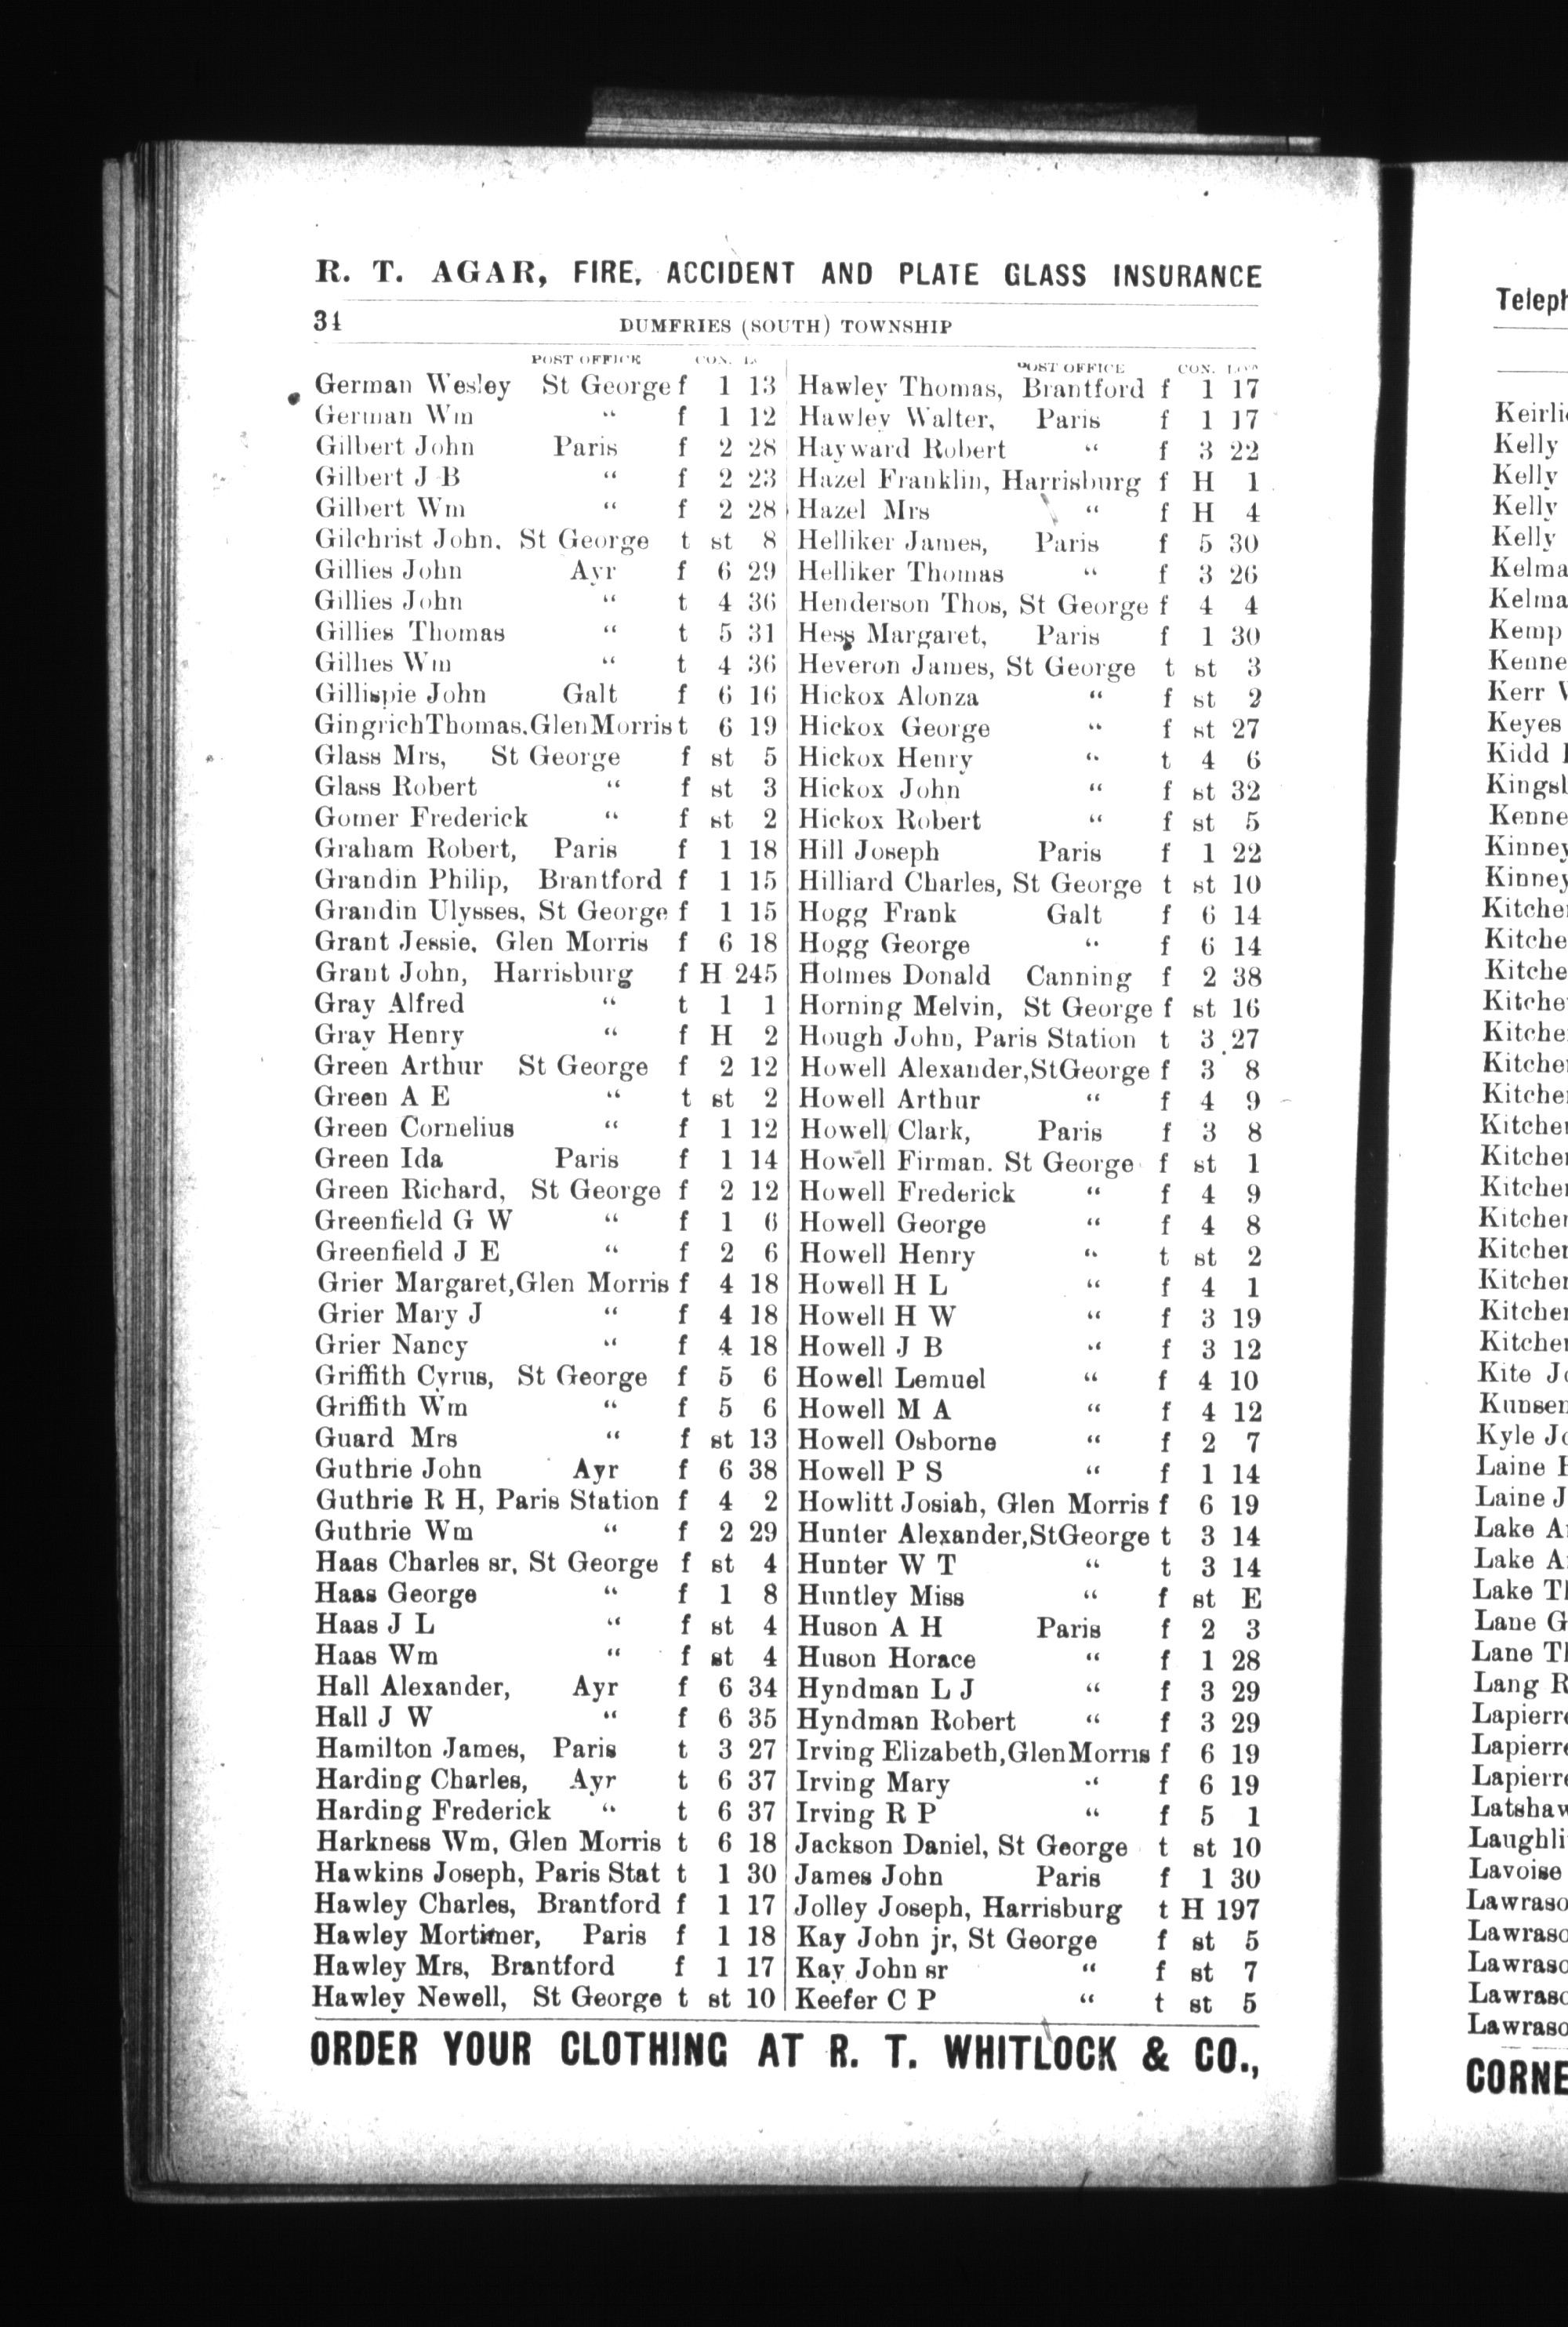 R. T. AGAR, FIRE, ACCIDENT AND PLATE GLASS INSURANCE
34 DUMFRIES (SOUTH) TOWNSHIP
POST OFFICE CON.
German Wesley St George f 1 13
German Wm “ f 1 12
Gilbert John Paris f 2 28
Gilbert J B “ f 2 23
Gilbert Wm “ f 2 28
Gilchrist John, St George t st 8
Gillies John Ayr f 6 29
Gillies John “ t 4 36
Gillies Thomas “ t 5 31
Gillies Wm “ t 4 36
Gillispie John Galt f 6 16
GingrichThomas,GlenMorris t 6 19
Glass Mrs, St George f st 5
Glass Robert “ f st 3
Gomer Frederick “ f st 2
Graham Robert, Paris f 1 18
Grandin Philip, Brantford f 1 15
Grandin Ulysses, St George f 1 15
Grant Jessie, Glen Morris f 6 18
Grant John, Harrisburg f H 245
Gray Alfred “ t 1 1
Gray Henry “ f H 2
Green Arthur St George f 2 12
Green A E “ t st 2
Green Cornelius “ f 1 12
Green Ida Paris f 1 14
Green Richard, St George f 2 12
Greenfield G W “ f 1 6
Greenfield J E “ f 2 6
Grier Margaret,Glen Morris f 4 18
Grier Mary J “ f 4 18
Grier Nancy “ f 4 18
Griffith Cyrus, St George f 5 6
Griffith Wm “ f 5 6
Guard Mrs “ f st 13
Guthrie John Ayr f 6 38
Guthrie R H, Paris Station f 4 2
Guthrie Wm “ f 2 29
Haas Charles sr, St George f st 4
Haas George “ f 1 8
Haas J L “ f st 4
Haas Wm “ f st 4
Hall Alexander, Ayr f 6 34
Hall J W “ f 6 35
Hamilton James, Paris t 3 27
Harding Charles, Ayr t 6 37
Harding Frederick “ t 6 37
Harkness Wm, Glen Morris t 6 18
Hawkins Joseph, Paris Stat t 1 30
Hawley Charles, Brantford f 1 17
Hawley Mortimer, Paris f 1 18
Hawley Mrs, Brantford f 1 17
Hawley Newell, St George t st 10
POST OFFICE CON. LOT
Hawley Thomas, Brantford f 1 17
Hawley Walter, Paris f 1 17
Hayward Robert “ f 3 22
Hazel Franklin, Harrisburg f H 1
Hazel Mrs “ f H 4
Helliker James, Paris f 5 30
Helliker Thomas “ f 3 26
Henderson Thos, St George f 4 4
Hess Margaret, Paris f 1 30
Heveron James, St George t st 3
Hickox Alonza “ f st 2
Hickox George “ f st 27
Hickox Henry “ t 4 6
Hickox John “ f st 32
Hickox Robert “ f st 5
Hill Joseph Paris f 1 22
Hilliard Charles, St George t st 10
Hogg Frank Galt f 6 14
Hogg George “ f 6 14
Holmes Donald Canning f 2 38
Horning Melvin, St George f st 16
Hough John, Paris Station t 3 27
Howell Alexander,StGeorge f 3 8
Howell Arthur “ f 4 9
Howell Clark, Paris f 3 8
Howell Firman. St George f st 1
Howell Frederick “ f 4 9
Howell George “ f 4 8
Howell Henry “ t st 2
Howell H L “ f 4 1
Howell H W “ f 3 19
Howell J B “ f 3 12
Howell Lemuel “ f 4 10
Howell M A “ f 4 12
Howell Osborne “ f 2 7
Howell P S “ f 1 14
Howlitt Josiah, Glen Morris f 6 19
Hunter Alexander,StGeorge t 3 14
Hunter W T “ t 3 14
Huntley Miss “ f st E
Huson A H Paris f 2 3
Huson Horace “ f 1 28
Hyndman L J “ f 3 29
Hyndman Robert “ f 3 29
Irving Elizabeth,GlenMorris f 6 19
Irving Mary “ f 6 19
Irving R P “ f 5 1
Jackson Daniel, St George t st 10
James John Paris f 1 30
Jolley Joseph, Harrisburg t H 197
Kay John jr, St George f st 5
Kay John sr “ f st 7
Keefer C P “ t st 5
ORDER YOUR CLOTHING AT R. T. WHITLOCK & CO.,
Kelly
Kelly
Kelly
Kelly
Kemp
Kerr
Keyes
Kidd
Kite
Kyle
Laine
Laine J
Lake
Lake
Lake
Lane G
Lane
Lang R